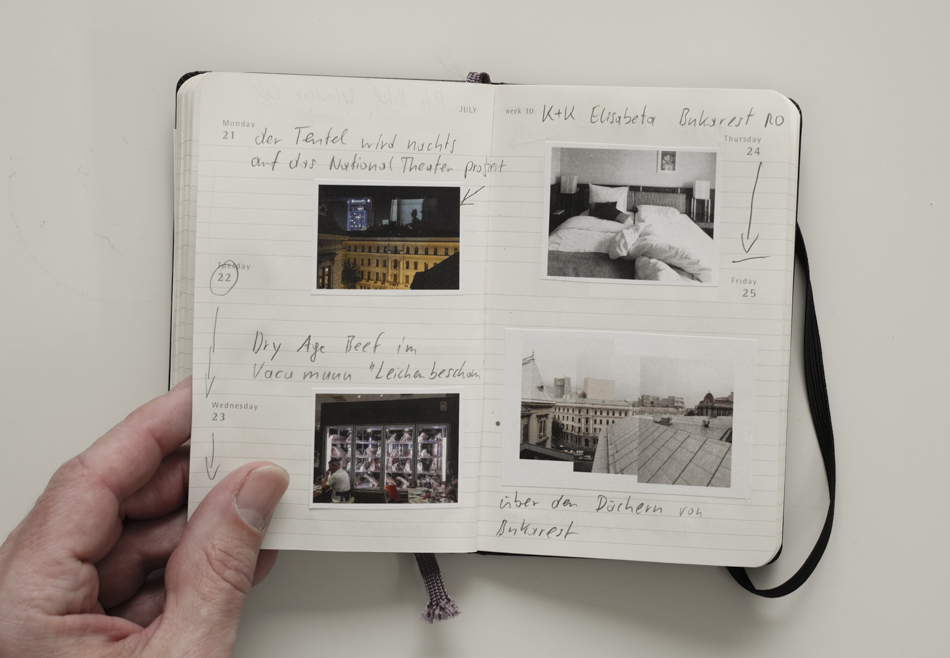 JULY
Monday
21
der Teufel wird nachts
auf das National Theater projiziert
Tuesday
22
Dry Age Beef im
Vacu mann "Leichenbeschau
Wednesday
23
week 30
K+K Elisabeta Bukarest RO
Thursday
24
Friday
25
über den Dächern von
Bukarest